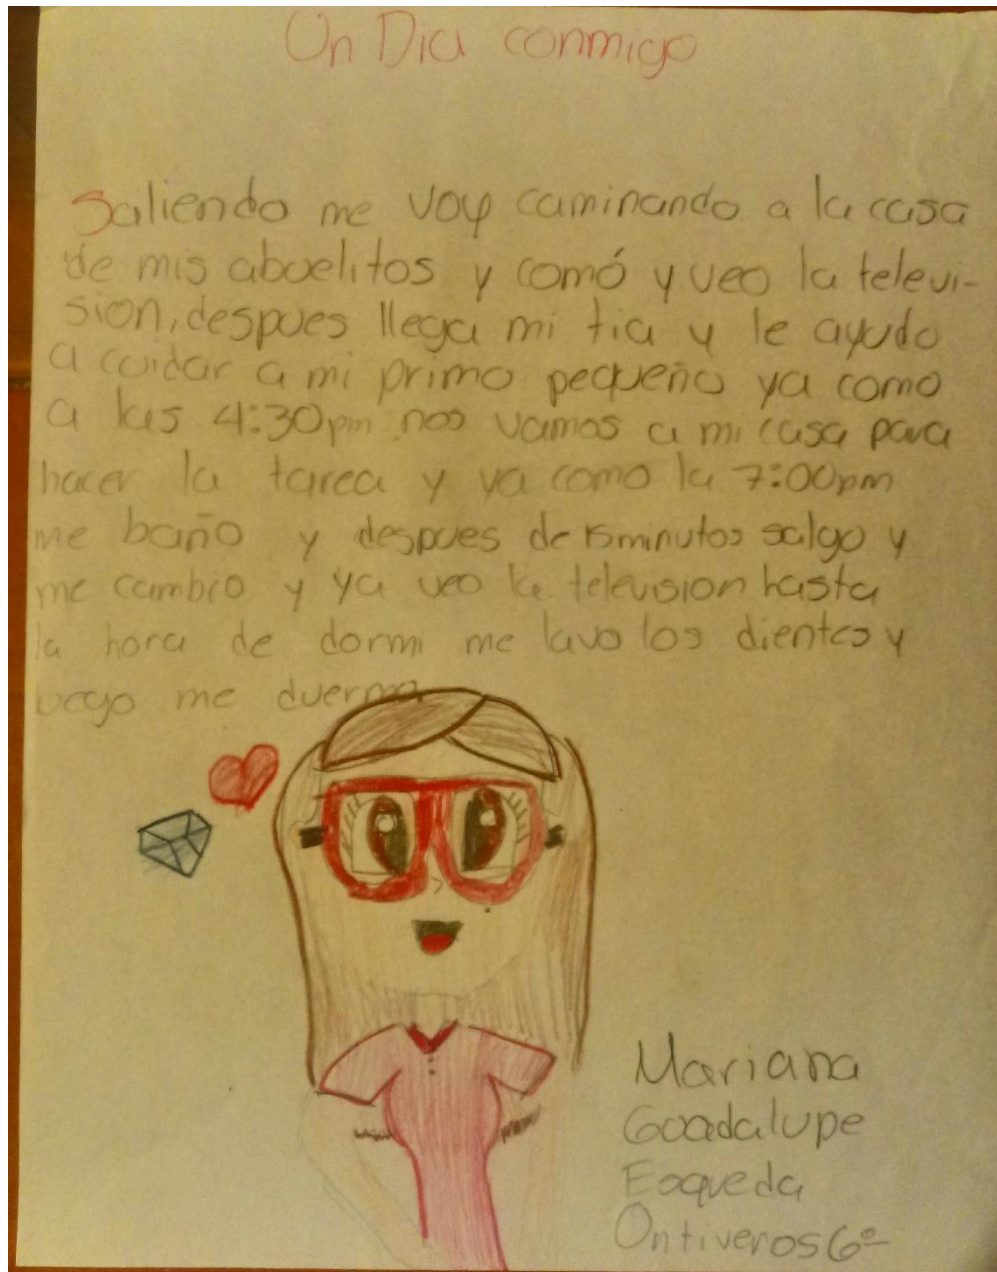 Un Dia conmigo
Saliendo me voy caminando a la casa
de mis abuelitos y comó y veo la televi-
sion, despues llega mi tia y le ayudo
a cuidar a mi primo pequeño ya como
a las 4:30pm nos vamos a mi casa para
hacer la tarea y ya como la 7:00pm
me baño y despues de 15minutos salgo y
me cambio y ya veo la television hasta
la hora de dormi me lavo los dientes y
uego me duermo
Mariana
Guadalupe
Esqueda
Ontiveros 6º